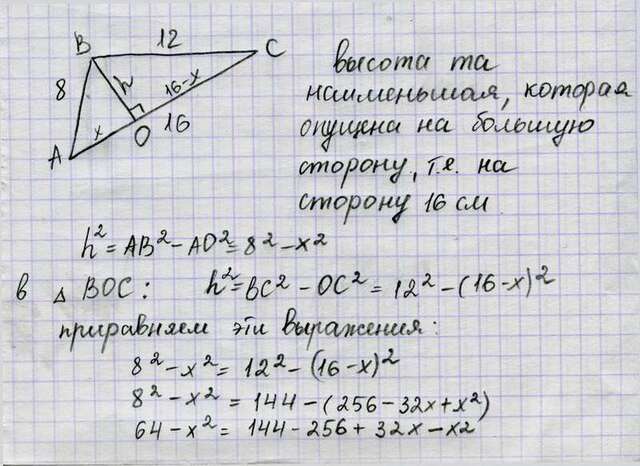 B 12 C
8 h 16-x
x 16
A O
высота та
наименьшая, которая
опущена на большую
сторону, т.е. на
сторону 16 см
h² = AB² - AO² = 8² - x²
в △ BOC: h² = BC² - OC² = 12² - (16-x)²
приравняем эти выражения:
8² - x² = 12² - (16-x)²
8² - x² = 144 - (256 - 32x + x²)
64 - x² = 144 - 256 + 32x - x2